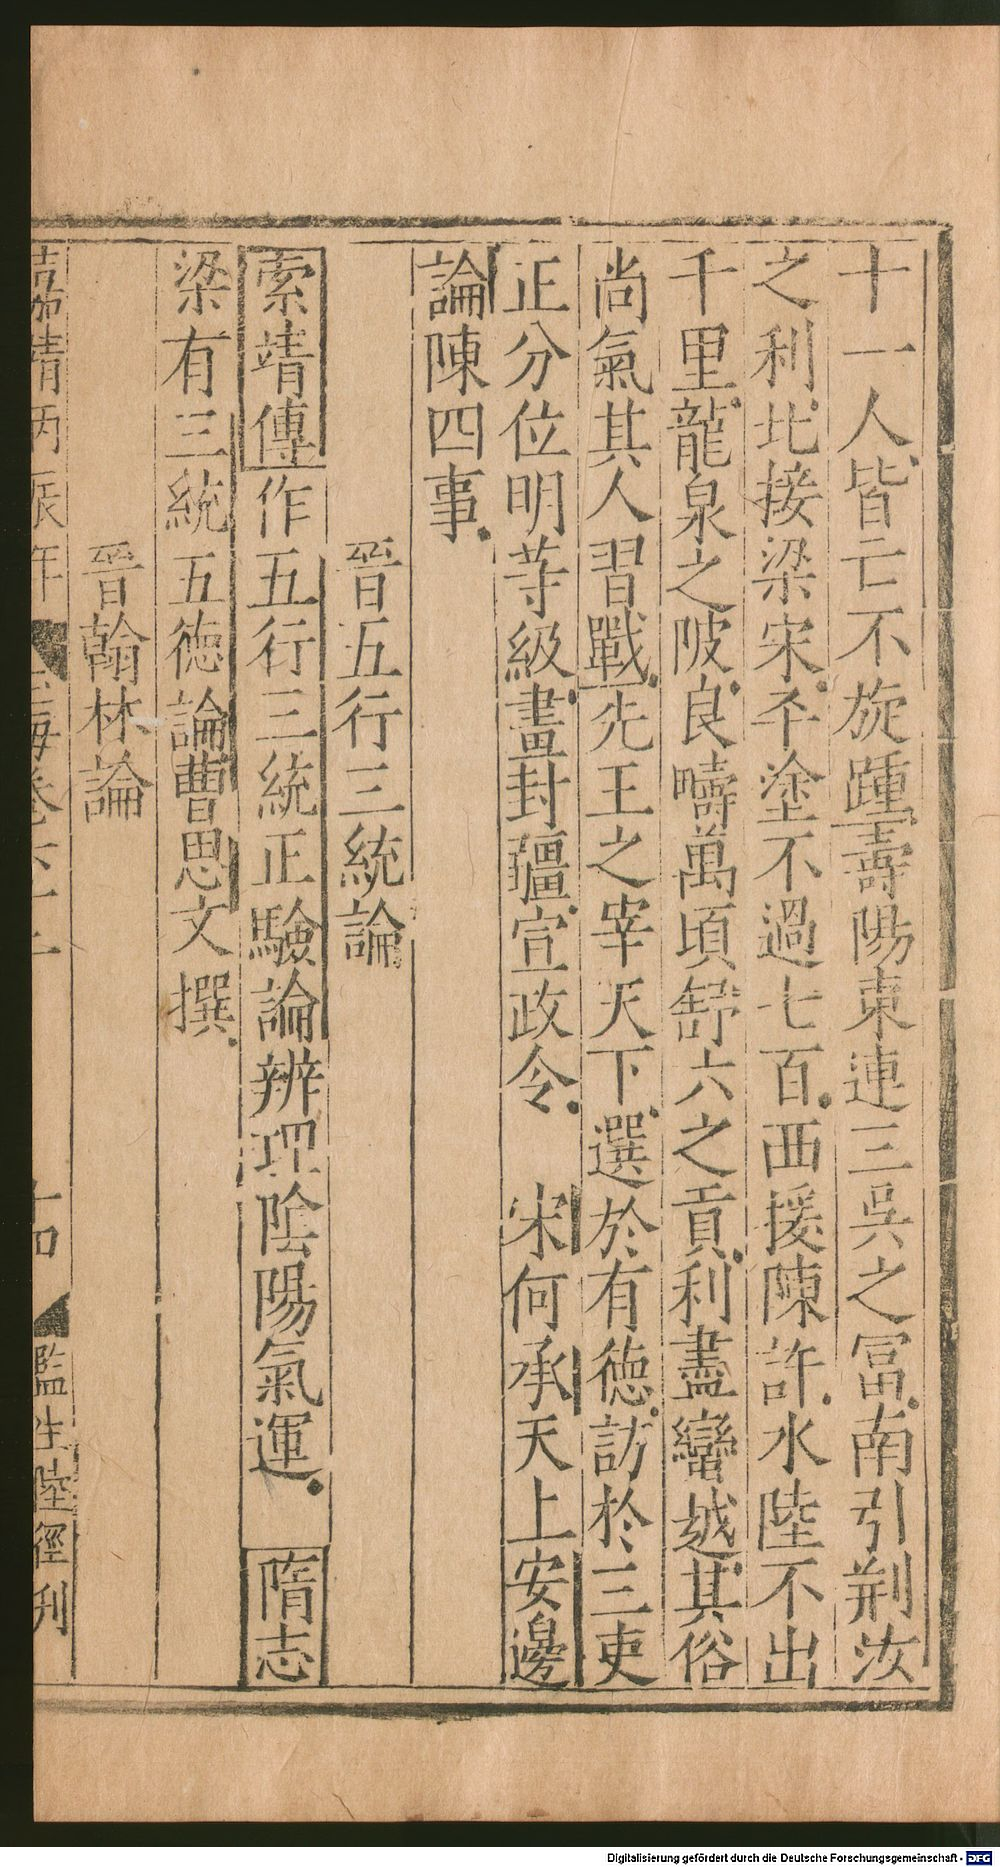 十一人皆亡不旋踵壽陽東連三吳之冨南引荆汝
之利北接梁宋平塗不過七百西援陳許水陸不出
千里龍泉之陂良疇萬頃舒六之貢利盡蠻越其俗
尚氣其人習戰先王之宰天下選於有徳訪於三吏
正分位明䒭級畫封疆宣政令 宋何承天上安邊
論陳四事
晉五行三統論
索靖傳作五行三統正驗論辨理陰陽氣運 隋志
梁有三統五徳論曹思文撰
晉翰林論
嘉靖丙辰年 玉海卷六十二 十四 監生陸徑刋
Digitalisierung gefördert durch die Deutsche Forschungsgemeinschaft - DFG